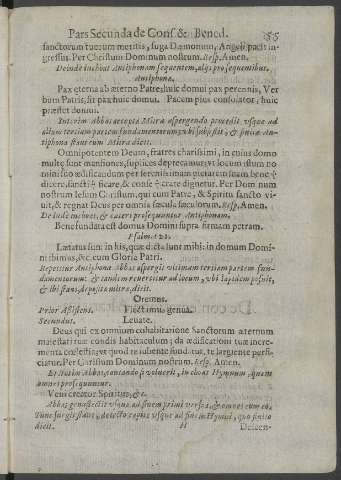 Pars Secunda de Conf & Bened. 85
sanctorum tuorum meritis, fuga Dæmonum, Angeli pacis in-
gressus. Per Christum Dominum nostrum. Resp. Amen.
Deinde inchoat Antiphonam sequentem, aliis prosequentibus.
Antiphona.
Pax eterna ab æterno Patre, huic domui pax perennis, Ver
bum Patris, sit pax huic domui. Pacem pius consolator, huic
præstet domui.
Interim Abbas accepta Mitra aspergendo procedit vsque ad
aliam tertiam partem fundamentorum, & ubi subsistit, & finita An-
tiphona stans cum Mitra dicit.
Omnipotentem Deum, fratres charissimi, in cuius domo
multę sunt mansiones, suplices deprecamur, vt locum istum no
mini suo ædificandum per seruissimam pietatem suam bene ✠
dicere, sancti ✠ ficare, & conse ✠ crare dignetur. Per Dominum
nostrum Iesum Christum, qui cum Patre, & Spiritu sancto vi-
uit, & regnat Deus per omnia sæcula sæculorum. Resp. Amen.
Deinde inchoet, & cæteri prosequuntur Antiphonam.
Bene fundata est domus Domini supra firmam petram.
Psalm. 121.
Lætatus sum in his, quæ dicta sunt mihi: in domum Domi-
ni ibimus, &c. cum Gloria Patri.
Repetitur Antiphona Abbas aspergit vltimam tertiam partem fun-
damentorum: & tandem reuertitur ad locum, vbi lapidem posuit,
& ibi stans, deposita mitra, dicit.
Oremus.
Prior Assistens. Flectamus genua.
Secundus. Leuate.
Deus qui ex omnium cohabitatione Sanctorum æternum
maiestati tuæ condis habitaculum; da ædificationi tuæ incre-
menta cœlestia: vt quod te iubente fundatur, te largiente perfi-
ciatur. Per Christum Dominum nostrum. Resp. Amen.
Et statim Abbas, cantando si voluerit, inchoat Hymnum, quem
omnes prosequuntur.
Veni creator Spiritus, &c.
Abbas genuflectit vsque ad finem primi versus, & omnes cum eo.
Tunc surgit stans, detecto capite vsque ad finem Hymni, quo finito
dicit. H Descen-